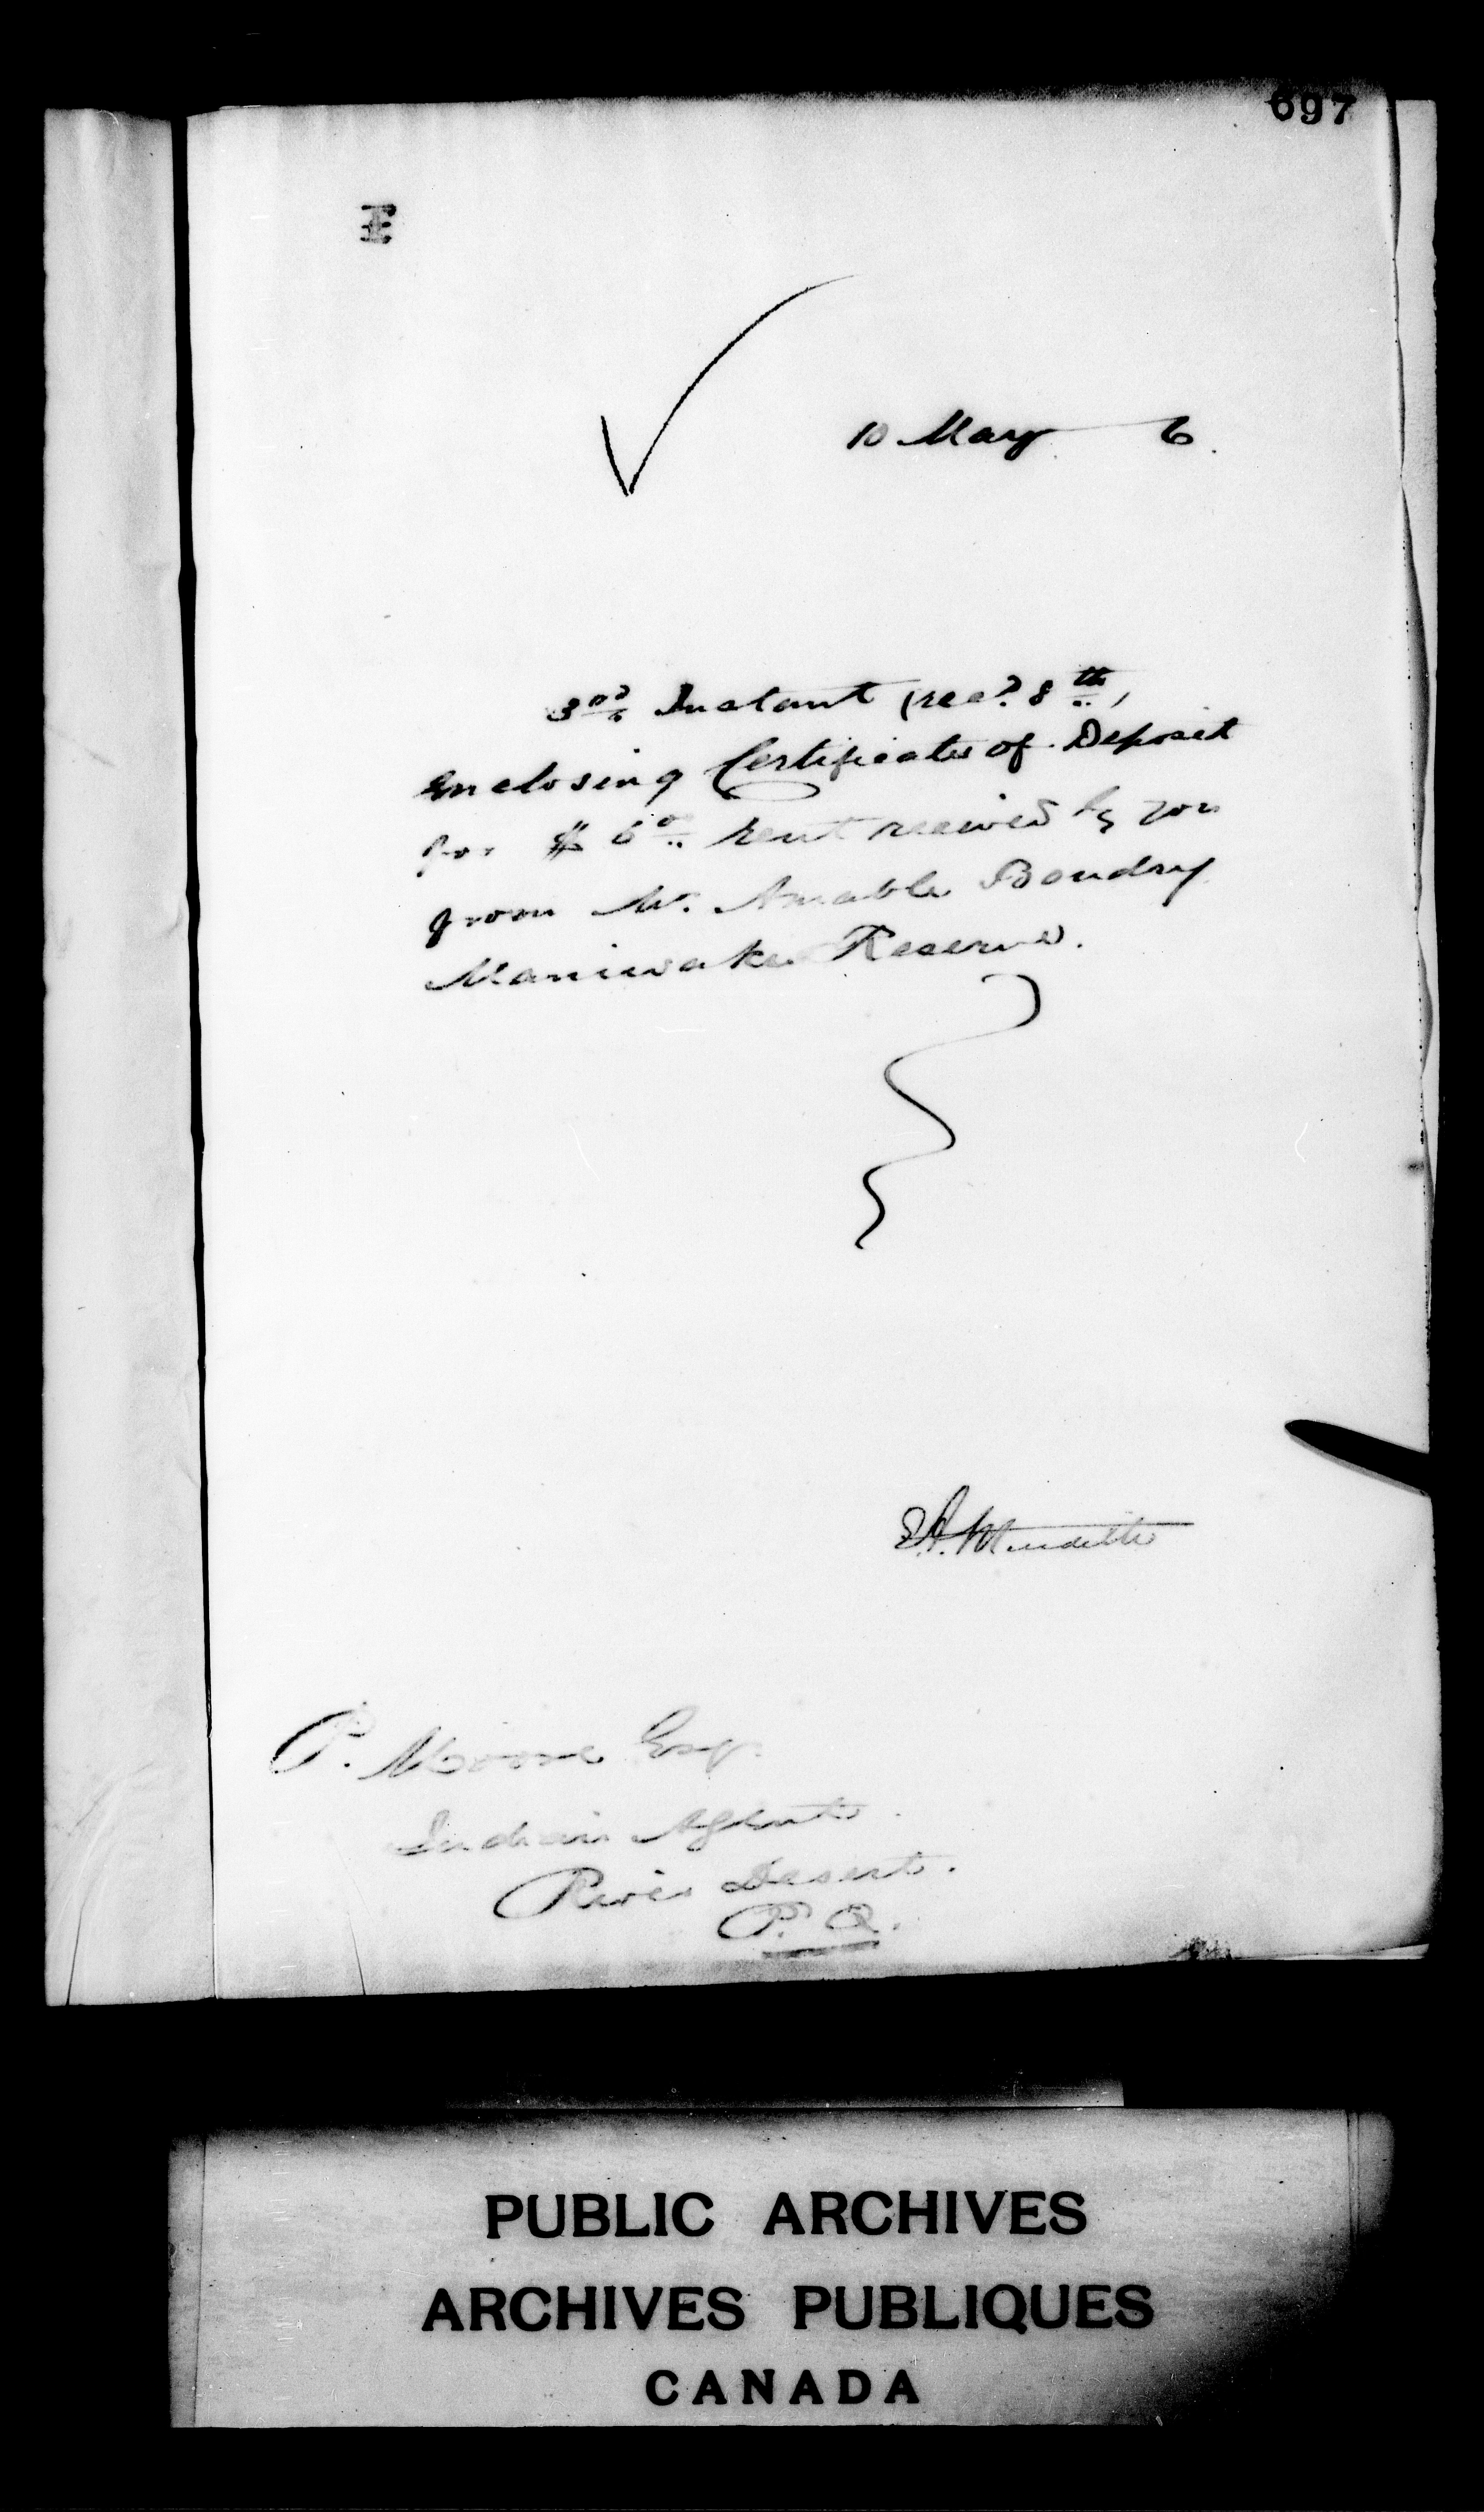 697
E
10 May 6.
3rd Instant (recd. 8th,
Enclosing Certificate of Deposit
for $ 6.00 rent received by you
from Mr. Amable Beaudry
Maniwake Reserve.
E.A. Meredith
P. Moore Esq.
Indian Agent.
River Desert.
P.Q.
PUBLIC ARCHIVES
ARCHIVES PUBLIQUES
CANADA